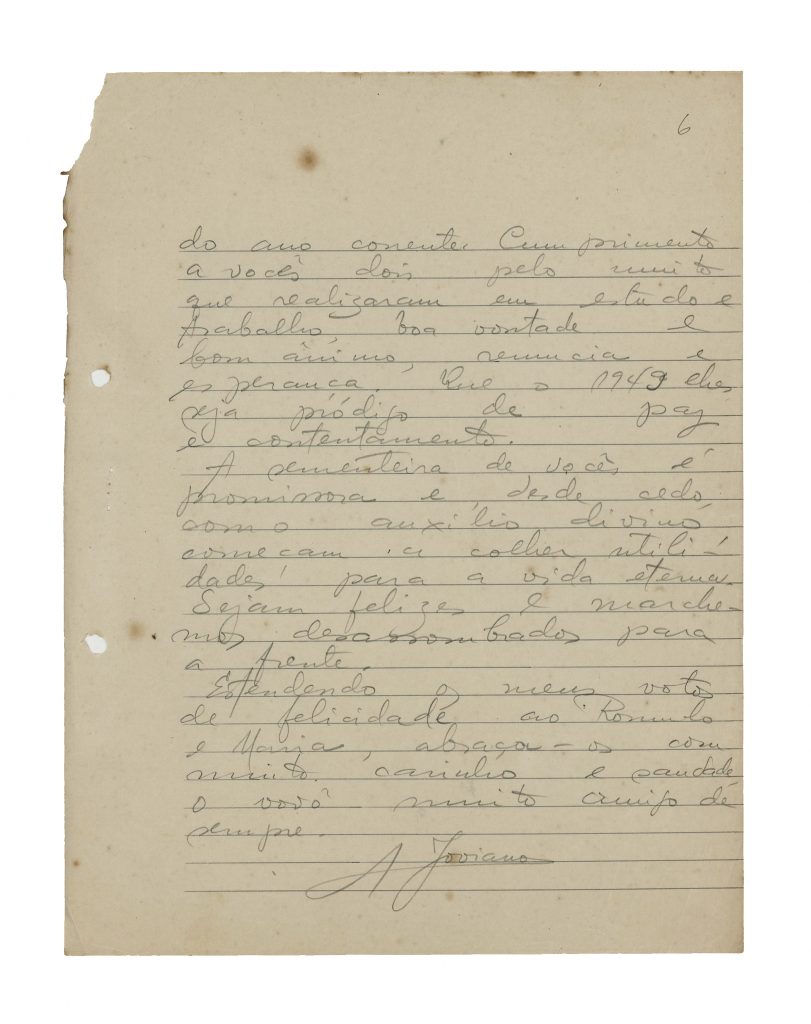 6
do ano corrente. Cumprimento
a vocês dois pelo muito
que realizaram em estudo e
trabalho, boa vontade e
bom ânimo, renuncia e
esperança. Que o 1949 lhes
seja pródigo de paz
e contentamento.
A sementeira de vocês é
promissora e, desde cedo,
com o auxílio divino,
começam a colher utili-
dades para a vida eterna.
Sejam felizes e marche-
mos desassombrados para
a frente.
Estendendo os meus votos
de felicidade ao Romulo
e Maria, abraça-os com
muito carinho e saudade
o vovô muito amigo de
sempre.
A Joviano